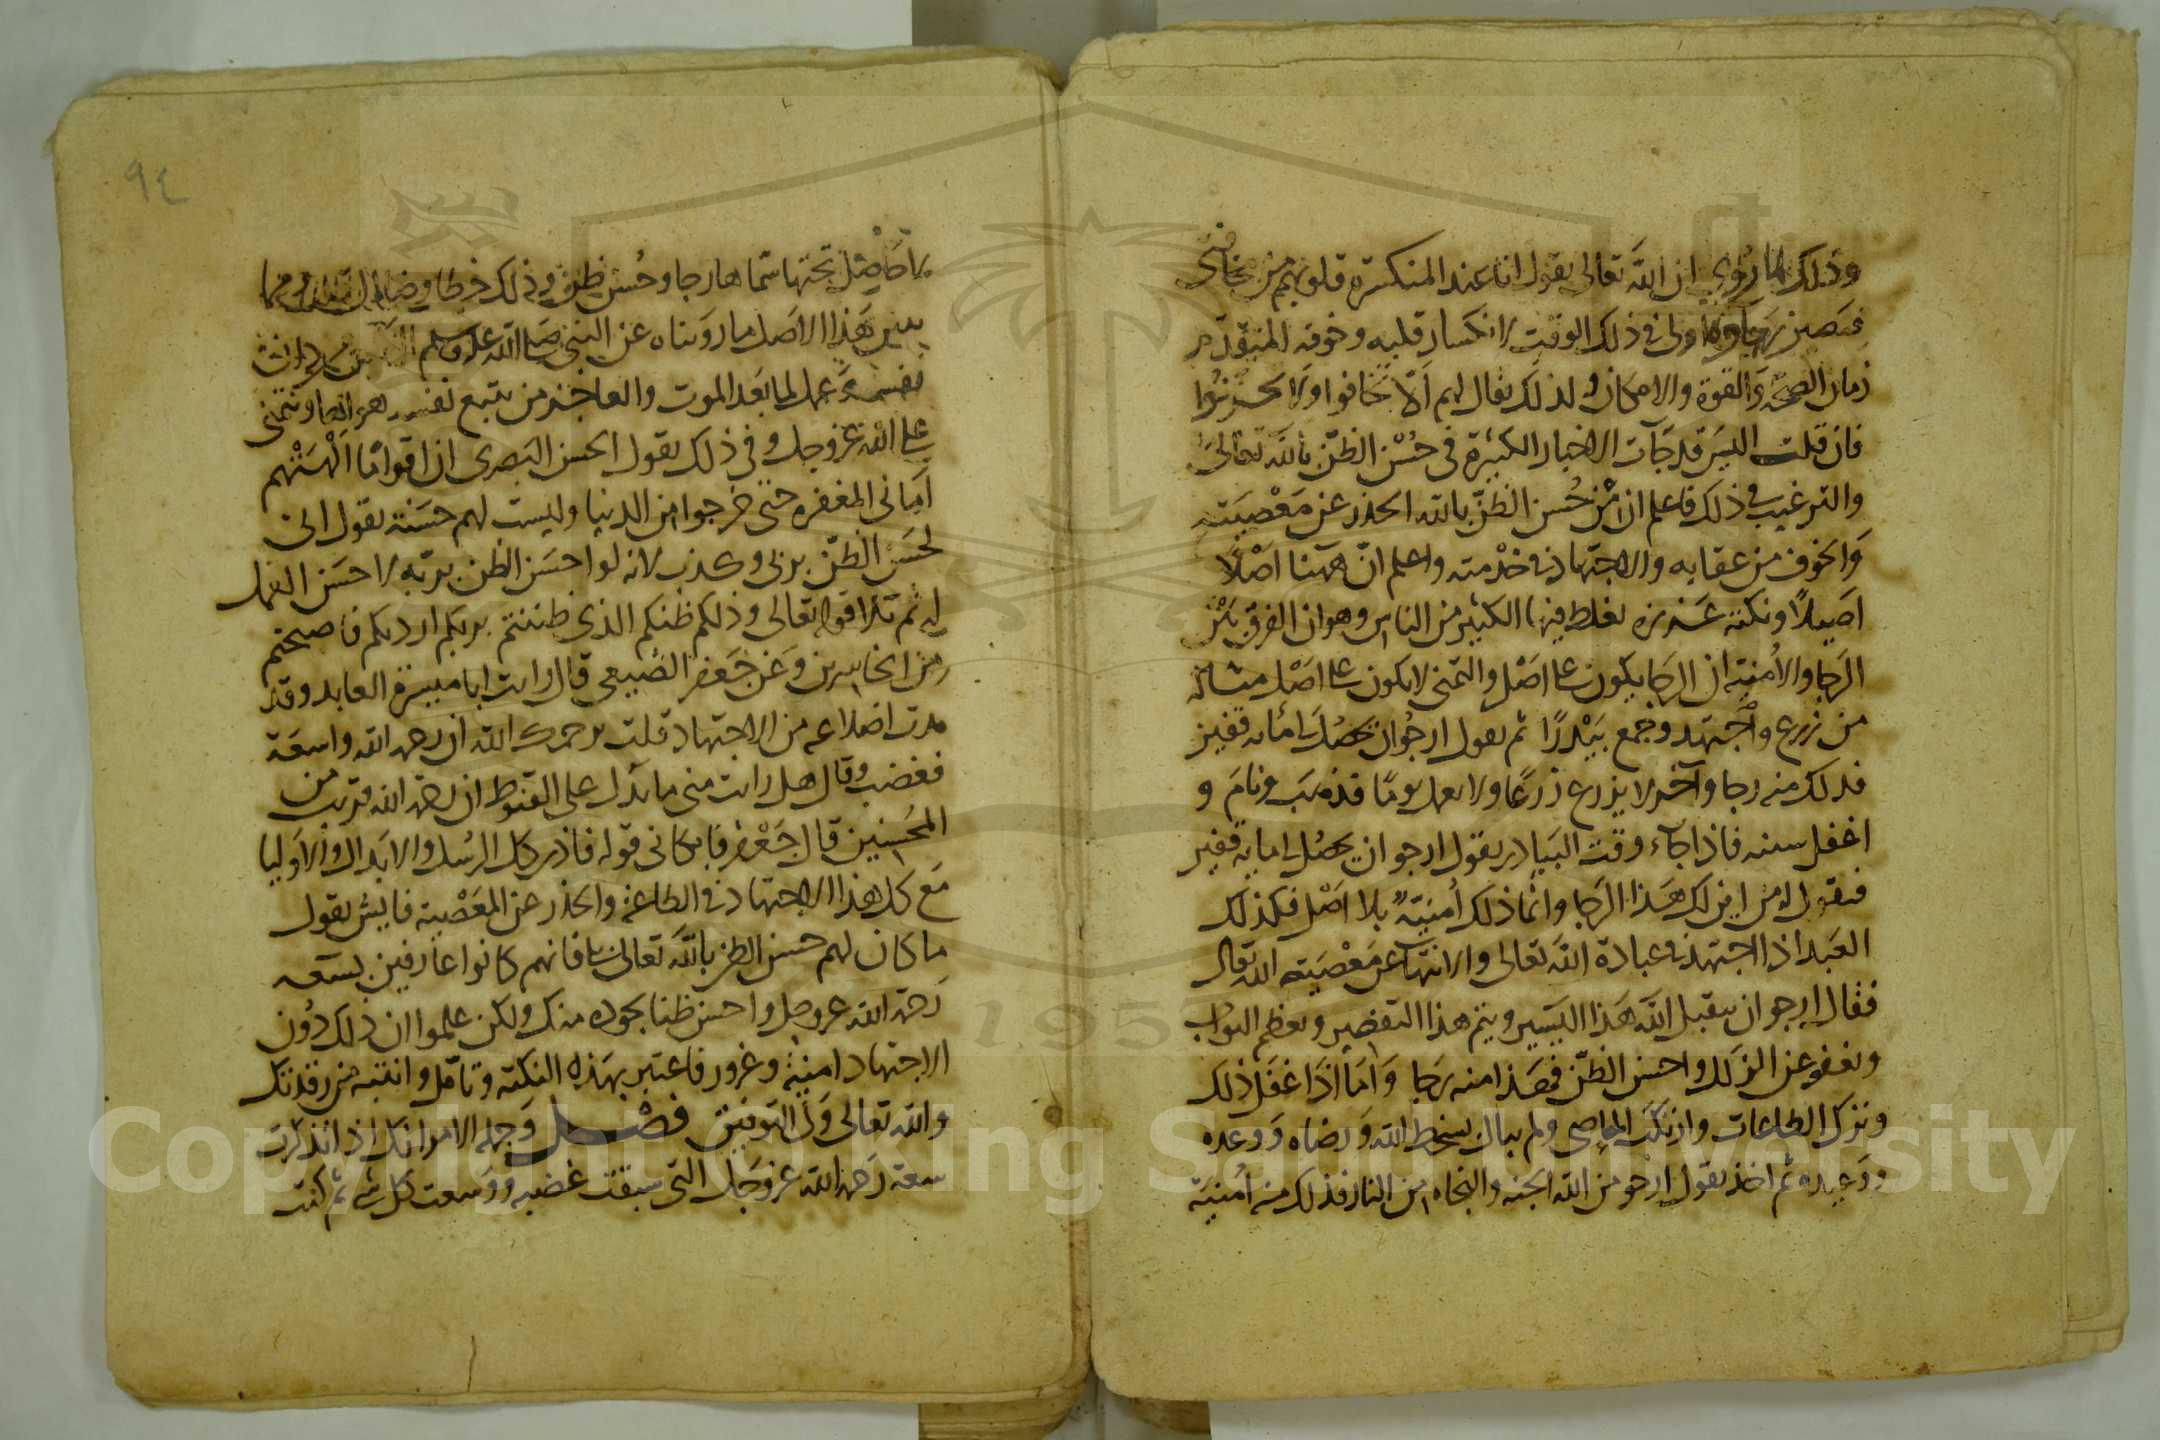 وذلك لما روي ان الله تعالى يقول انا عند المنكسرة قلوبهم من مخافتي
فيصير رجاوه اولى في ذلك الوقت لانكسار قلبه وخوفه المتقدم
زمان الصحة والقوة والامكان ولذلك يقال لهم ألا تخافوا ولا تحزنوا
فان قلت اليس قد جآت الاخبار الكثيرة في حُسْن الظنّ بالله تعالى
والترغيب في ذلك فاعلم ان من حُسن الظنّ بالله الحذر عن مَعْصِيَته
وَالخوف من عقابه والاجتهاد في خدْمته واعلم انّ ههنا اصْلًا
اصَيلًا ونكتة عَزيزه يغلط فيها الكثير من الناس وهو ان الفرق بَيْن
الرَجا والأمنية ان الرجا يكون على اصْل والتمنى لا يكون على اصْل مثاله
من زرع واجْتهد وجمع بَيْدرًا ثم يقول ارجُوا ان يحصُل لى مائه قفيز
فذلك منه رجا وآخر لا يزرع زرعًا ولا يعمل يومًا قد ذهَب ونامَ و
اغفل سنته فاذا جآء وقت البَيادر يقول ارجو ان يحصُل لى مايه قفيز
فيقول له من اين لك هَذا الرجا وانما ذلك أمنيّة بلا اصْل فكذلك
العَبد اذا اجتهد في عبادة الله تعالى والانتهآ عن مَعْصيَته الله تعالى
فقال ارجو ان يتقبل الله هَذا اليَسير ويتم هذا التقصير ويعظم الثواب
ويعفو عن الزلل واحسن الظنّ فهَذا منه رَجا وَامّا اذا غفل ذلك
وترك الطاعات وارتكب المعاصى ولم يبال بسخط الله وَرضاه وَوعده
ووَعيده ثم اخذ يقول ارجو من الله الجنه والنجاه من النار فذلك منه امُنية
لا حَاصِل تحتها سَمّاها رجا وحُسن ظن وذلك خطا وضلال
يبين هَذا الاصَل ما رويناه عن النبي صلى الله عليه وسلم الكيس من دان
نفسه وعمل لما بَعد الموت والعاجز من يتبع نفسه هواها ويتمنى
على الله عز وجل وفي ذلك يقول الحسن البَصرى ان اقوامًا ألْهَتْهم
امَانى المغفره حتى خرجوا من الدنيا وليست لهم حسَنة يقول انى
لحسَن الظنّ بربي وكذب لانه لو احسَن الظن بربّه لاحسَن العمل
له ثم تلا قوله تعالى وذلكم ظنكم الذي ظننتم بربكم ارديكم فاصبحتم
من الخاسرين وَعَن جَعفر الضبيعي قال رايت ابا ميسرة العابد وقد
بدت اضلاعه من الاجتهاد قلت يرحمك الله ان رحمه الله واسعَة
فغضب وقال هل رايت منى ما يدل على القنوط ان رحمه الله قريب من
المحسنين قال جَعْفر فابكاني قوله فاذا كان كل الرسُل والابدال والاوليا
مَع كل هَذا الاجتهاد في الطاعة والحذر عن المعْصِية فايش يقول
ما كان لهم حسن الظن بالله تعالى بلا فانهم كانوا عارفين بسَعه
رَحمة الله عز وجل واحسن ظنا بجوده منك ولكن علموا ان ذلك دُون
الاجتهاد امنية وغرور فاعتبر بهَذه النكته وتامّل وانتبه من رقدتك
والله تعالى وَلى التوفيق فصْل وَجمله الامر انك اذا تذكرت
سعة رَحمة الله عز وَجَل التي سبقت غضبه ووَسعت كل شي ثم كنت
٩٤
Copyright © King Saud University
1957